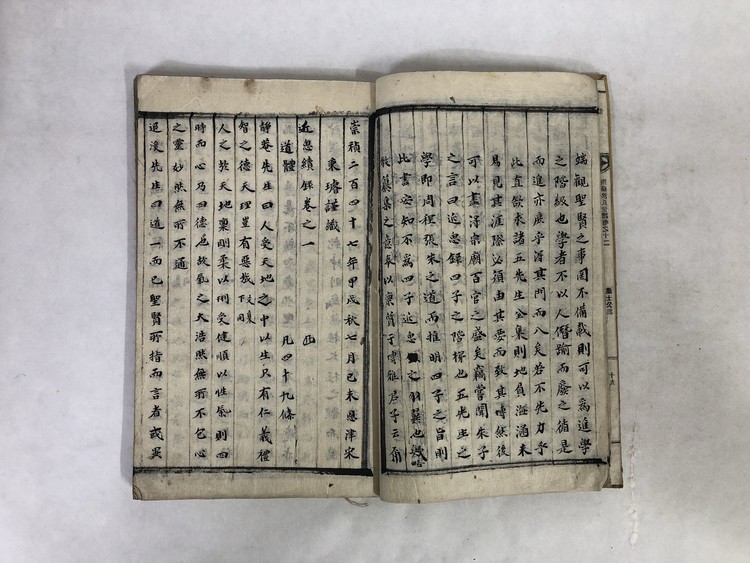 端觀聖賢之事固不備載則可以為進學
之階級也學者不以人僭踰而廢之循是
而進亦庶乎得其門而入矣若不先力乎
此直欲求諸五先生公集則地負海涵未
易見其涯際必須由其要而致其博然後
可以盡得宗廟百官之盛矣竊嘗聞朱子
之言曰近思錄四子之階梯也五先生之
學即周程張朱之道而推明四子之旨則
此書安知不為四子近思之羽翼也哉
敢纂集之意奉以稟質于博雅君子云爾
崇禎二百四十七年甲戌秋七月己未恩津宋
秉璿謹識
近思續錄卷之一
道體 凡四十九條
靜菴先生曰人受天地之中以生只有仁義禮
智之德天理豈有惡哉
人之於天地稟剛柔以形受健順以性氣則四
時而心乃四德也故氣之大浩然無所不包心
之靈妙然無所不通
退溪先生曰道一而已聖賢所指而言者或異